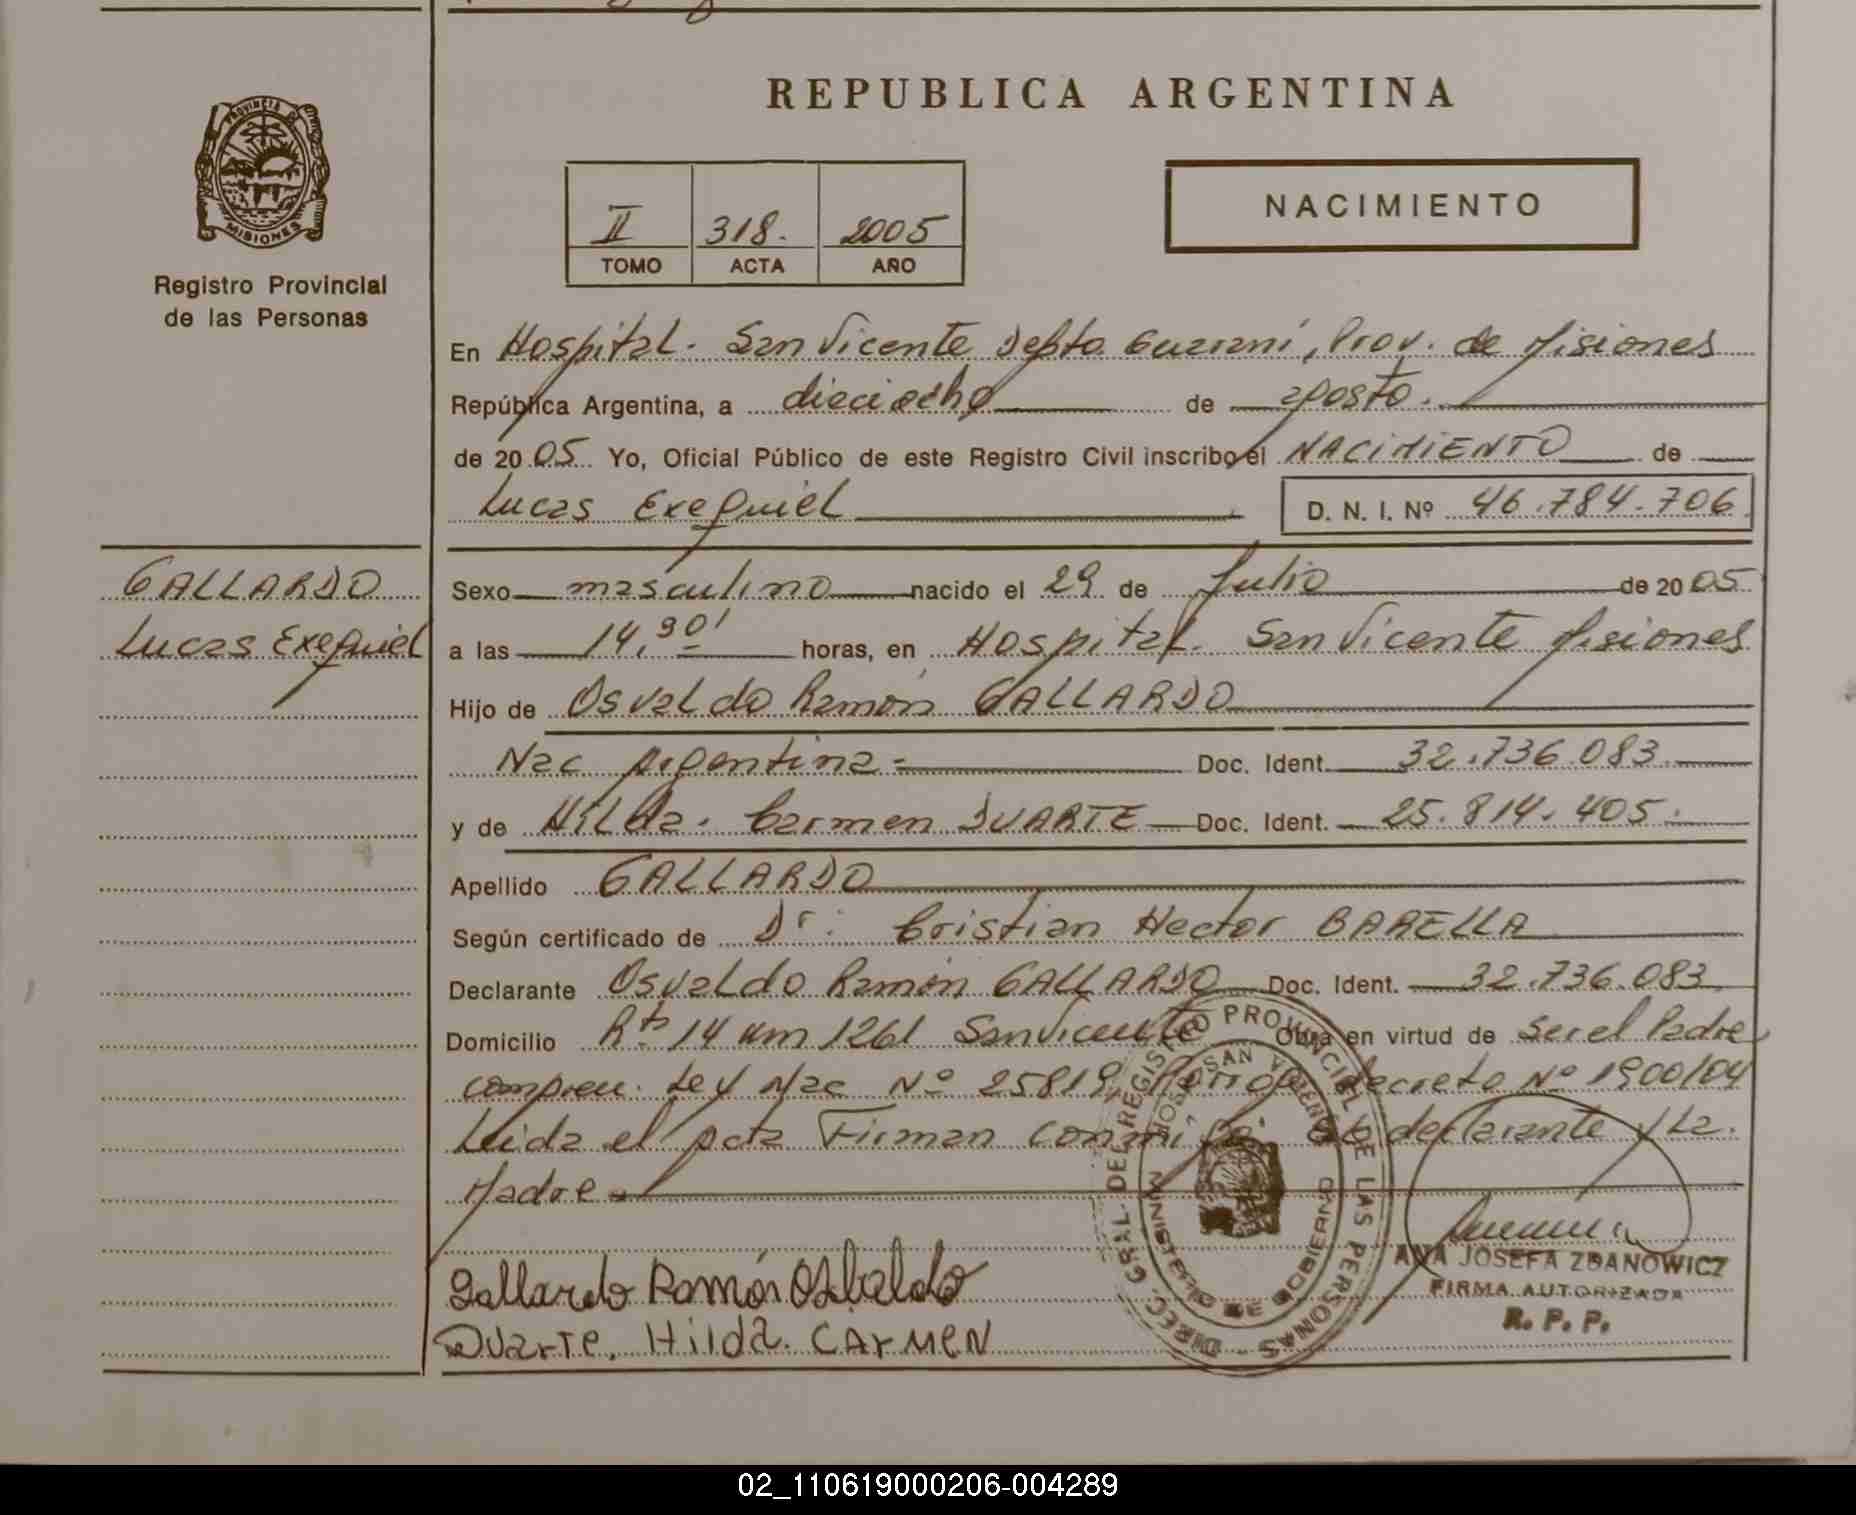 REPUBLICA ARGENTINA
PROVINCIA
MISIONES
Registro Provincial
de las Personas
II 318. 2005
TOMO ACTA AÑO
NACIMIENTO
En Hospital. San Vicente Depto Guaraní, Prov. de Misiones
República Argentina, a dieciocho de agosto.
de 2005 Yo, Oficial Público de este Registro Civil inscribo el NACIMIENTO de
Lucas Exequiel D. N. I. Nº 46.784.706
GALLARDO
Lucas Exequiel
Sexo masculino nacido el 29 de Julio de 2005
a las 14,30' horas, en Hospital. San Vicente Misiones
Hijo de Osvaldo Ramón GALLARDO
Nac Argentina- Doc. Ident. 32.736.083.
y de Hilda. Carmen DUARTE Doc. Ident. 25.814.405.
Apellido GALLARDO
Según certificado de Dr: Cristian Hector BARELLA
Declarante Osvaldo Ramón GALLARDO Doc. Ident. 32.736.083
Domicilio Rta 14 Km 1261 San Vicente Obra en virtud de Ser el Padre
compren. Ley Nac Nº 25819, decreto Nº 1900/04
Leida el acta Firman conmigo. El declarante y La.
Madre
Gallardo Ramón Osbaldo
Duarte. Hilda. Carmen
DIREC. GRAL. DEL REGISTRO PROVINCIAL DE LAS PERSONAS
HOSP. SAN VICENTE
MINISTERIO DE GOBIERNO
ANA JOSEFA ZDANOWICZ
FIRMA AUTORIZADA
R. P. P.
02_110619000206-004289